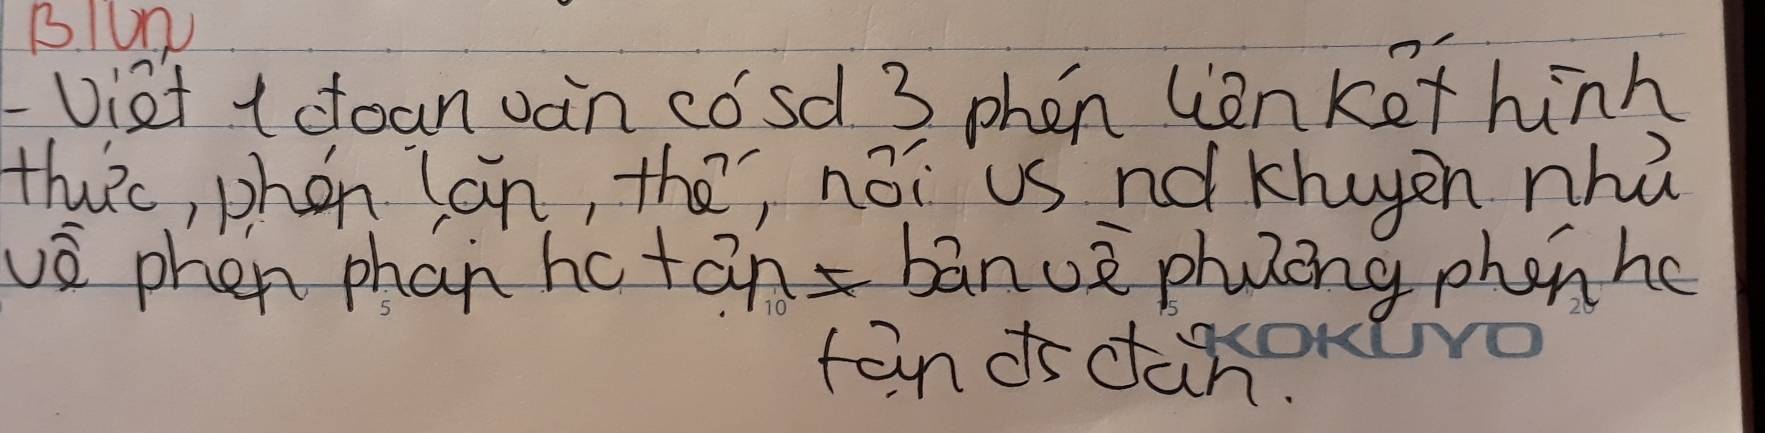 BTVN
- Viết 1 đoạn văn có sd 3 phép liên kết hình
thức, phép lặp, thế, nối vs nd khuyên nhủ
về phep phap hc tập = bàn về phương phép hc
5 10 15 20
KOKUYO
tập đs đắn.